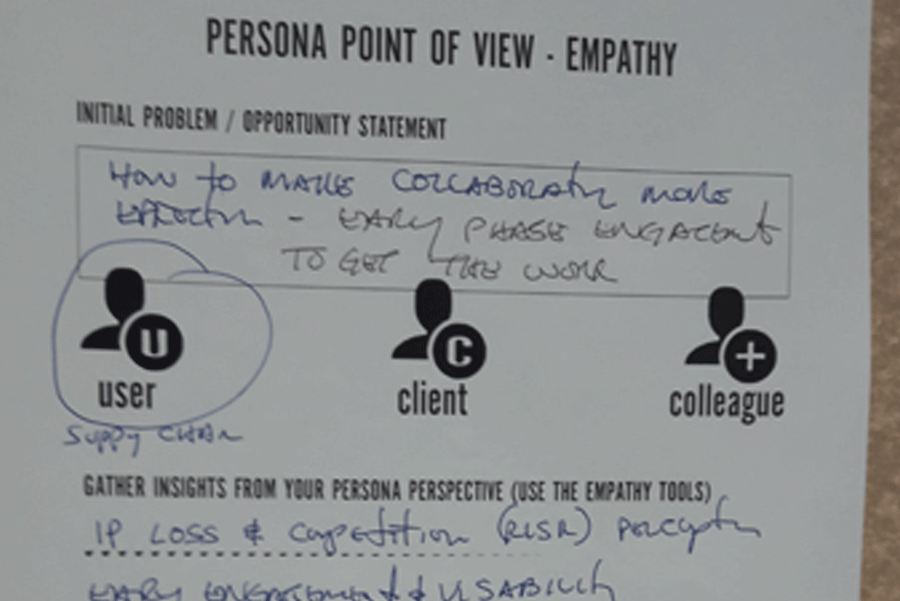 PERSONA POINT OF VIEW - EMPATHY
INITIAL PROBLEM / OPPORTUNITY STATEMENT
HOW TO MAKE COLLABORATION MORE
EFFECTIVE - EARLY PHASE ENGAGEMENT
TO GET THE WORK
U
C
+
user
client
colleague
Supply CHAIN
GATHER INSIGHTS FROM YOUR PERSONA PERSPECTIVE (USE THE EMPATHY TOOLS)
IP LOSS & Competition (RISK) Perception
EARLY ENGAGEMENT & USABILITY